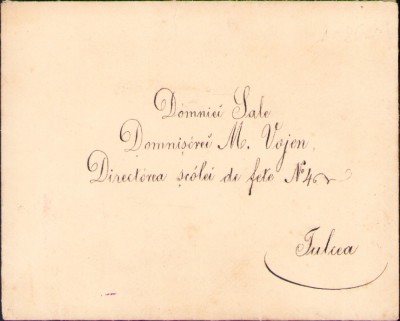 Domniei Sale
Domnișórei M. Vojen.
Directórea șcólei de fete Nº 4
Tulcea